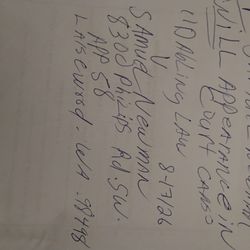 WILL Appearance in
Court CARSO
110 Ading LAW
V 8-17/26
SAmuel Newman
8300 Phillips Rd. SW.
APP 58
LAKEwood. WA. 98498